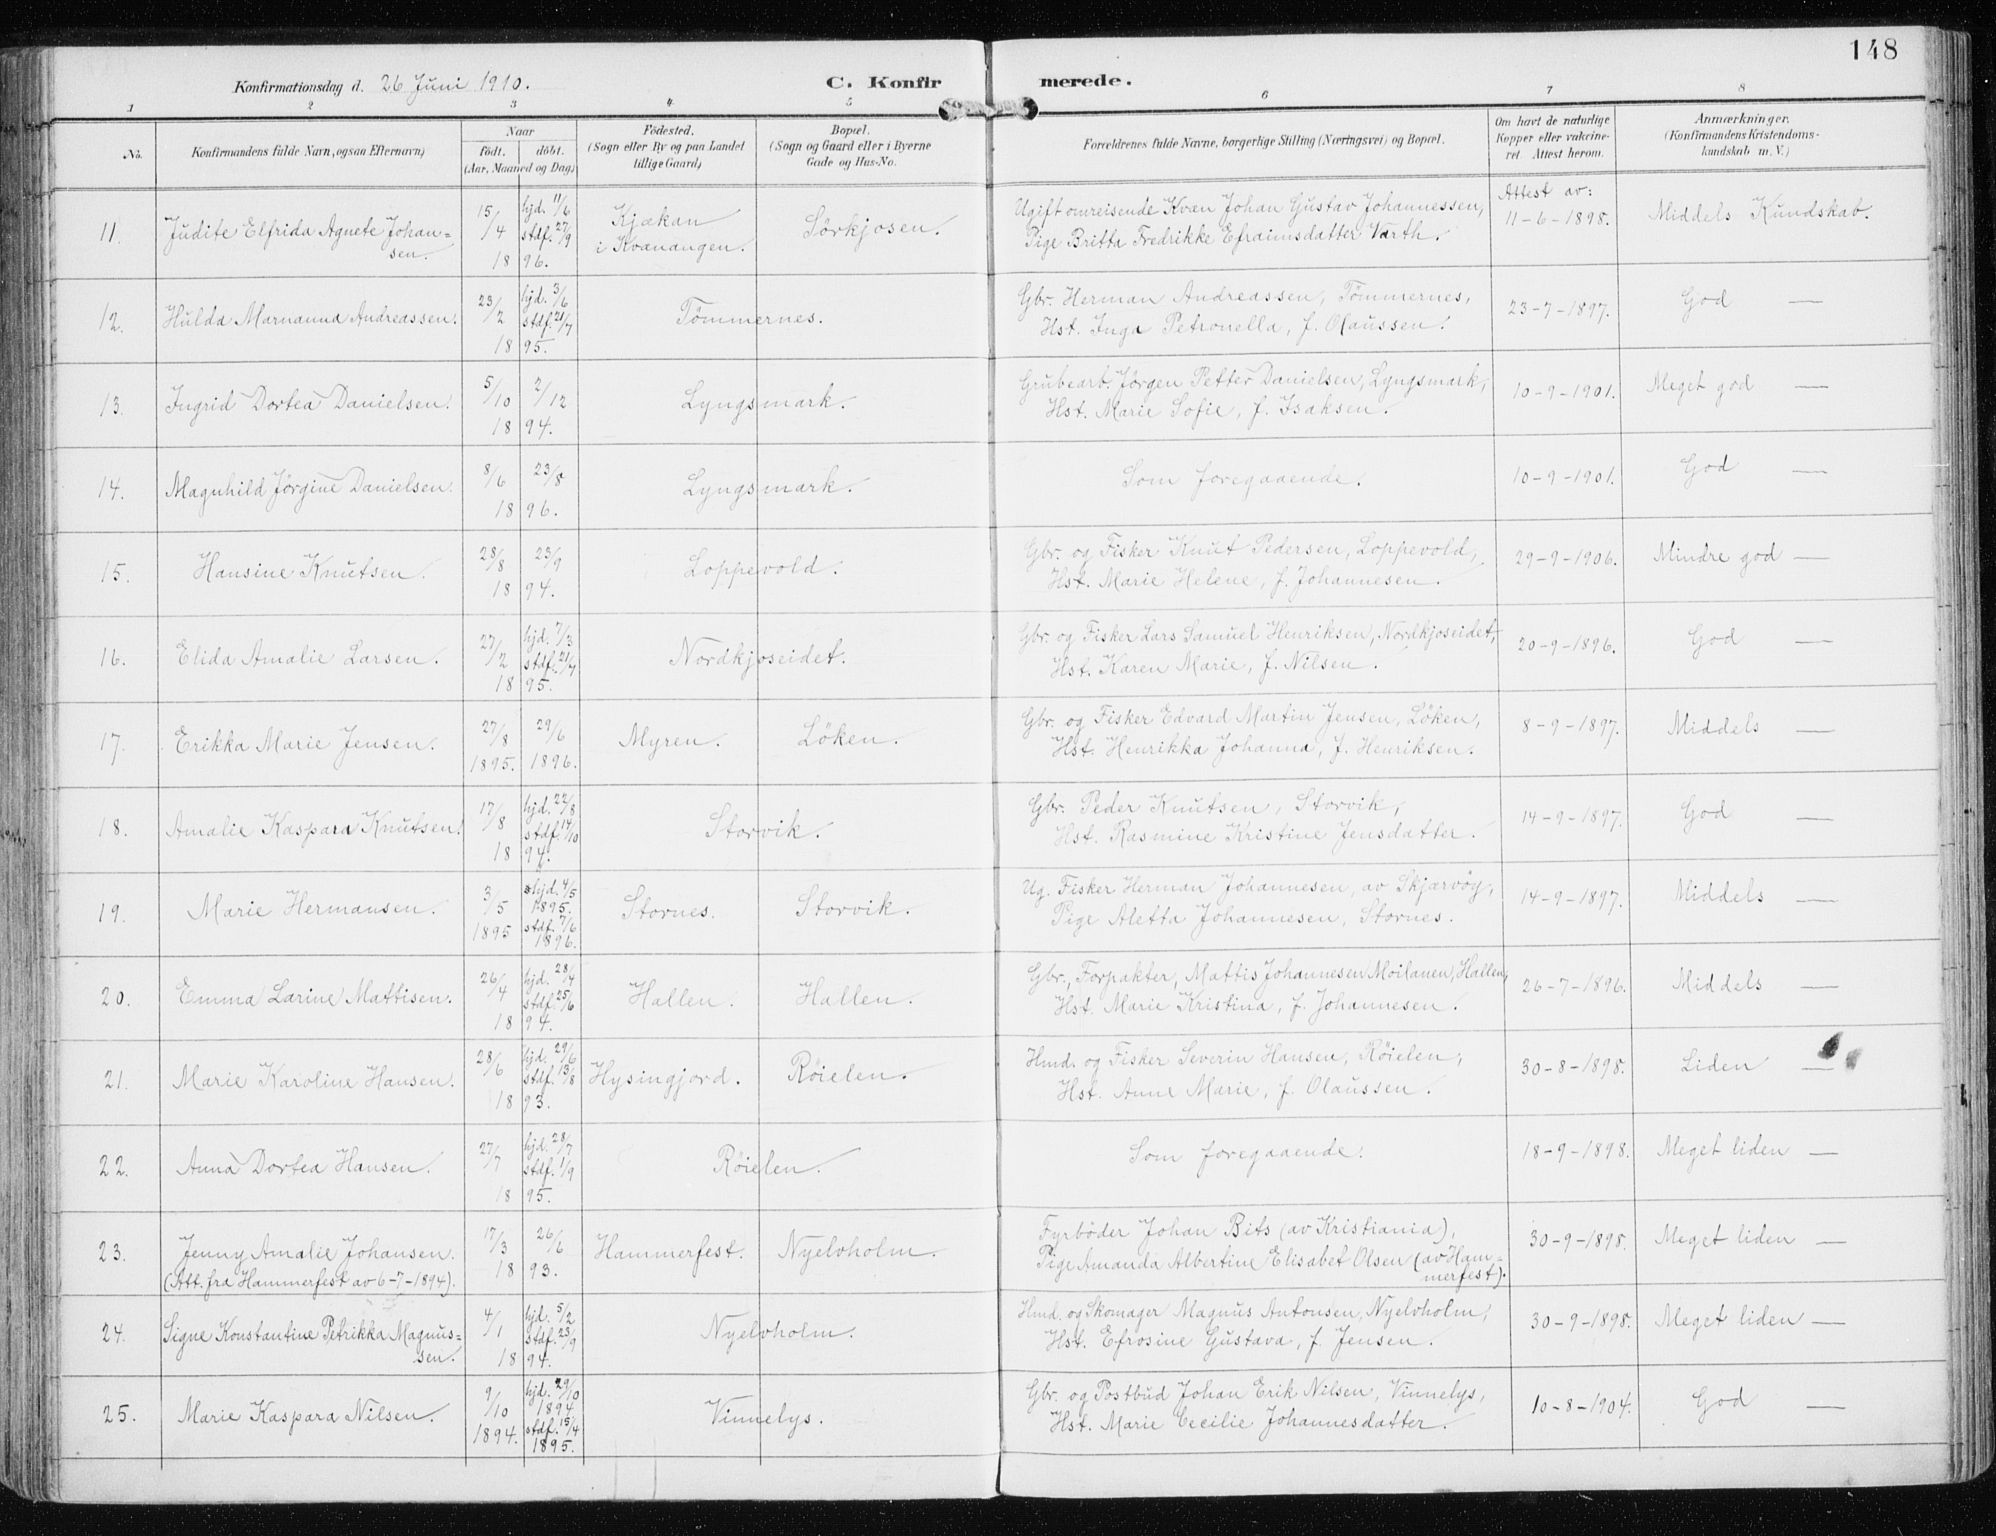 148
Konfirmationsdag d. 26 Juni 1910. C. Konfirmerede.
1 2 3 4 5 6 7 8
No. Konfirmandens fulde Navn, ogsaa Efternavn) Naar født. døbt. (Aar, Maaned og Dag) Fødested. (Sogn eller By og paa Landet tillige Gaard) Bopæl. (Sogn og Gaard eller i Byerne Gade og Hus-No. Forældrenes fulde Navne, borgerlige Stilling (Næringsvei) og Bopæl. Om havt de naturlige Kopper eller vakcineret. Attest herom. Anmærkninger. (Konfirmandens Kristendomskundskab m. V.)
11. Judite Elfrida Agnete Johansen. 15/4 1896. hjd. 11/6 stdf. 27/9 Kjækan i Kvænangen. Sörkjosen. Ugift omreisende Kvæn Johan Gustav Johannessen, Pige Britta Fredrikke Efraimsdatter Varth. Attest av: 11-6-1898. Middels Kundskab.
12. Hulda Marnanna Andreassen. 23/2 1895. hjd. 3/6 stdf. 21/7 Tömmernes. Gbr. Herman Andreassen, Tömmernes, Hst. Inga Petronella, f. Olaussen. 23-7-1897. God —
13. Ingrid Dortea Danielsen. 5/10 2/12 1894. Lyngsmark. Grubearb. Jörgen Petter Danielsen, Lyngsmark, Hst. Marie Sofie, f. Isaksen. 10-9-1901. Meget god —
14. Magnhild Jörgine Danielsen. 8/6 23/8 1896. Lyngsmark. Som foregaaende. 10-9-1901. God —
15. Hansine Knutsen. 28/8 23/9 1894. Loppevold. Gbr. og Fisker Knut Pedersen, Loppevold, Hst. Marie Helene, f. Johannesen. 29-9-1906. Mindre god —
16. Elida Amalie Larsen. 27/2 1895. hjd. 7/3 stdf. 21/7 Nordkjoseidet. Gbr. og Fisker Lars Samuel Henriksen, Nordkjoseidet, Hst. Karen Marie, f. Nilsen. 20-9-1896. God —
17. Erikka Marie Jensen. 27/8 1895. 29/6 1896. Myren. Löken. Gbr. og Fisker Edvard Martin Jensen, Löken, Hst. Henrikka Johanna, f. Henriksen. 8-9-1897. Middels —
18. Amalie Kaspara Knutsen. 17/8 1894. hjd. 22/8 stdf. 14/10 Storvik. Gbr. Peder Knutsen, Storvik, Hst. Rasmine Kristine Jensdatter. 14-9-1897. God —
19. Marie Hermansen. 3/5 1895 hjd. 4/5 1895. stdf. 7/6 1896. Stornes. Storvik. Ug. Fisker Herman Johannesen, av Skjærvöy, Pige Aletta Johannesen, Stornes. 14-9-1897. Middels —
20. Emma Larine Mattisen. 26/4 1894. hjd. 28/4 stdf. 25/6 Hallen. Hallen. Gbr., Forpakter, Mattis Johannesen Moilanen, Hallen, Hst. Marie Kristina, f. Johannesen. 26-7-1896. Middels —
21. Marie Karoline Hansen. 28/6 1893. hjd. 29/6 stdf. 13/8 Hysingjord. Röielen. Hmd. og Fisker Severin Hansen, Röielen, Hst. Anne Marie, f. Olaussen. 30-8-1898. Liden —
22. Anna Dortea Hansen. 27/7 1895. hjd. 28/7 stdf. 1/9 Röielen. Som foregaaende. 18-9-1898. Meget liden —
23. Jenny Amalie Johansen. (Att. fra Hammerfest av 6-7-1894). 17/3 26/6 1893. Hammerfest. Nyelvholm. Fyrböder Johan Bits (av Kristiania), Pige Amanda Albertine Elisabet Olsen (av Hammerfest). 30-9-1898. Meget liden —
24. Signe Konstantine Petrikka Magnussen. 4/1 1894. hjd. 5/2 stdf. 23/9 Nyelvholm. Hmd. og Skomager Magnus Antonsen, Nyelvholm, Hst. Efrosine Gustava, f. Jensen. 30-9-1898. Meget liden —
25. Marie Kaspara Nilsen. 9/10 1894. hjd. 29/10 1894 stdf. 15/4 1895. Vinnelys. Gbr. og Postbud Johan Erik Nilsen, Vinnelys, Hst. Marie Cecilie Johannesdatter. 10-8-1904. God —